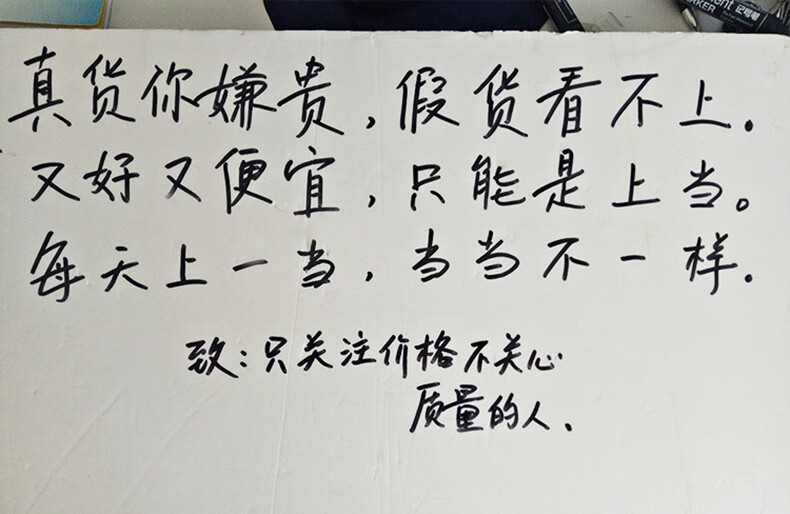 ght 记号笔
MARKER
真货你嫌贵，假货看不上。
又好又便宜，只能是上当。
每天上一当，当当不一样.
致：只关注价格不关心
质量的人.